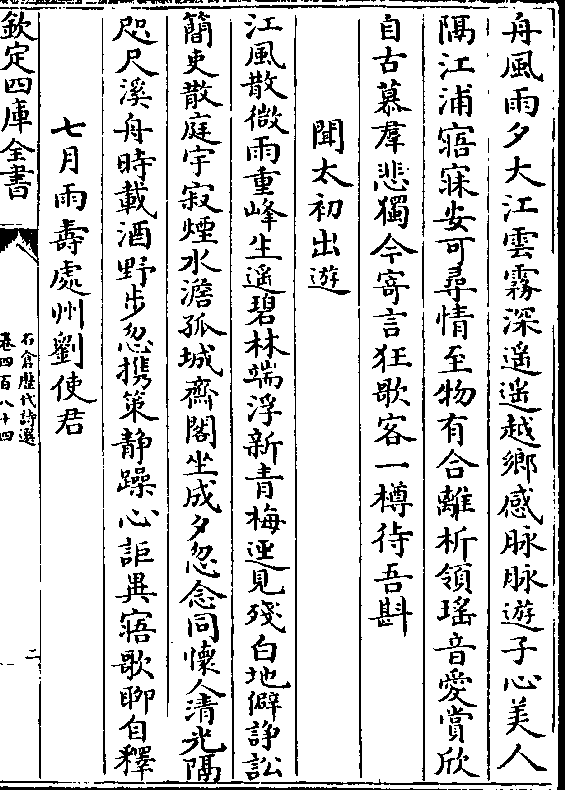 舟風雨夕大江雲霧深遙遙越鄉感脉脉遊子心美人
隔江浦寤寐安可尋情至物有合離析領瑤音愛賞欣
自古慕羣悲獨今寄言狂歌客一樽待吾斟
聞太初出遊
江風散微雨重峰生遙碧林端浮新青梅逕見殘白地僻諍訟
簡吏散庭宇寂煙水澹孤城齋閣坐成夕忽念同懷人清光隔
咫尺溪舟時載酒野步忽携策靜躁心詎異寤歌聊自釋
七月雨壽處州劉使君
欽定四庫全書
石倉歷代詩選
卷四百八十四
二